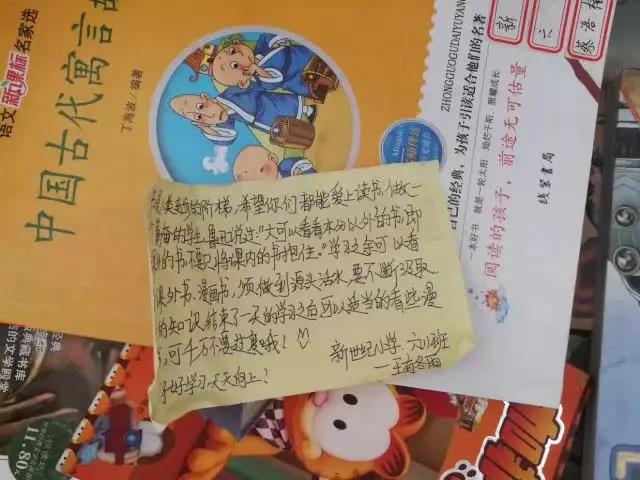 语文新课标名家选
中国古代寓言故
丁海波/编著
ZHONGGUOGUDAIYUYANG
为孩子引读适合他们的名著
自己的经典,
一本好书 就是一轮太阳 灿烂千阳 照耀成长
阅读的孩子,前途无可估量
线装书局
新
六
蔡浩
的阶梯,希望你们都能爱上读书,做一
的学生,鲁迅说过:"大可以看看本分以外的书,即
的书不要只将课内的书抱住。"学习之余可以看
课外书、漫画书,须做到源头活水,要不断汲取
的知识,结束了一天的学习之后可以适当的看些漫
,可千万不要过度哦!
新世纪小学 六(1)班
好好学习天天向上!
11.80